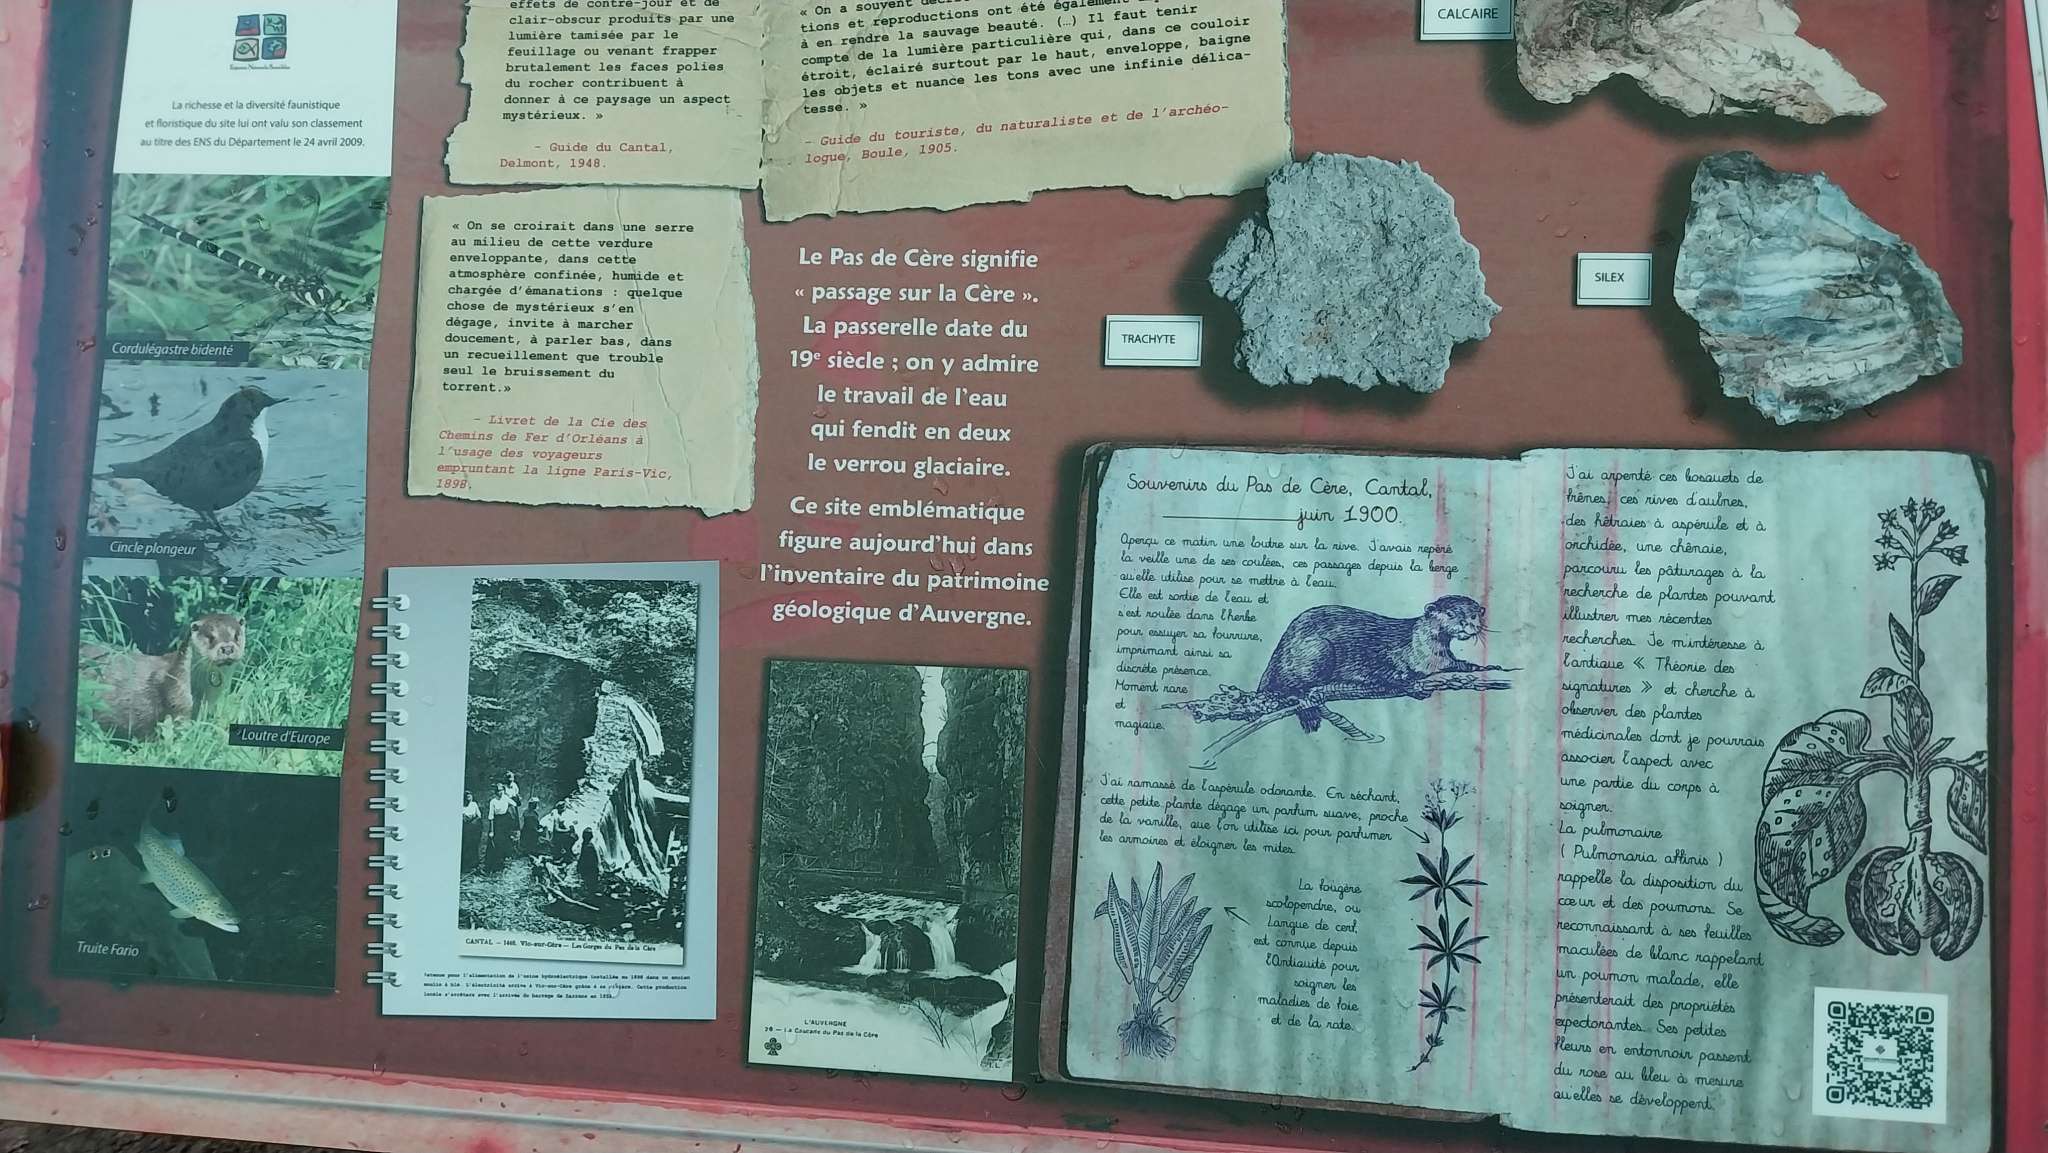 Espaces Naturels Sensibles
La richesse et la diversité faunistique
et floristique du site lui ont valu son classement
au titre des ENS du Département le 24 avril 2009.
Cordulégastre bidenté
Cincle plongeur
Loutre d'Europe
Truite Fario
effets de contre-jour et de
clair-obscur produits par une
lumière tamisée par le
feuillage ou venant frapper
brutalement les faces polies
du rocher contribuent à
donner à ce paysage un aspect
mystérieux. »
- Guide du Cantal,
Delmont, 1948.
« On a souvent
tions et reproductions ont été également
à en rendre la sauvage beauté. (…) Il faut tenir
compte de la lumière particulière qui, dans ce couloir
étroit, éclairé surtout par le haut, enveloppe, baigne
les objets et nuance les tons avec une infinie délica-
tesse. »
- Guide du touriste, du naturaliste et de l'archéo-
logue, Boule, 1905.
« On se croirait dans une serre
au milieu de cette verdure
enveloppante, dans cette
atmosphère confinée, humide et
chargée d'émanations : quelque
chose de mystérieux s'en
dégage, invite à marcher
doucement, à parler bas, dans
un recueillement que trouble
seul le bruissement du
torrent.»
- Livret de la Cie des
Chemins de Fer d'Orléans à
l'usage des voyageurs
empruntant la ligne Paris-Vic,
1898.
Le Pas de Cère signifie
« passage sur la Cère ».
La passerelle date du
19e siècle ; on y admire
le travail de l'eau
qui fendit en deux
le verrou glaciaire.
Ce site emblématique
figure aujourd'hui dans
l'inventaire du patrimoine
géologique d'Auvergne.
CALCAIRE
TRACHYTE
SILEX
CANTAL - 1460. Vic-sur-Cère - Les Gorges du Pas de la Cère
Retenue pour l'alimentation de l'usine hydroélectrique installée en 1898 dans un ancien
moulin à blé. L'électricité arrive à Vic-sur-Cère grâce à sa rivière. Cette production
locale s'arrêtera avec l'arrivée du barrage de Sarrans en 1932.
L'AUVERGNE
20 - La Cascade du Pas de la Cère
Souvenirs du Pas de Cère, Cantal,
juin 1900.
Aperçu ce matin une loutre sur la rive. J'avais repéré
la veille une de ses coulées, ces passages depuis la berge
qu'elle utilise pour se mettre à l'eau.
Elle est sortie de l'eau et
s'est roulée dans l'herbe
pour essuyer sa fourrure,
imprimant ainsi sa
discrète présence.
Moment rare
et
magique.
J'ai ramassé de l'aspérule odorante. En séchant,
cette petite plante dégage un parfum suave, proche
de la vanille, que l'on utilise ici pour parfumer
les armoires et éloigner les mites.
La fougère
scolopendre, ou
Langue de cerf,
est connue depuis
l'Antiquité pour
soigner les
maladies de foie
et de la rate.
J'ai arpenté ces bosquets de
frênes, ces rives d'aulnes,
des hêtraies à aspérule et à
orchidée, une chênaie,
parcouru les pâturages à la
recherche de plantes pouvant
illustrer mes récentes
recherches. Je m'intéresse à
l'antique « Théorie des
signatures » et cherche à
observer des plantes
médicinales dont je pourrais
associer l'aspect avec
une partie du corps à
soigner.
La pulmonaire
( Pulmonaria affinis )
rappelle la disposition du
cœur et des poumons. Se
reconnaissant à ses feuilles
maculées de blanc rappelant
un poumon malade, elle
présenterait des propriétés
expectorantes. Ses petites
fleurs en entonnoir passent
du rose au bleu à mesure
qu'elles se développent.